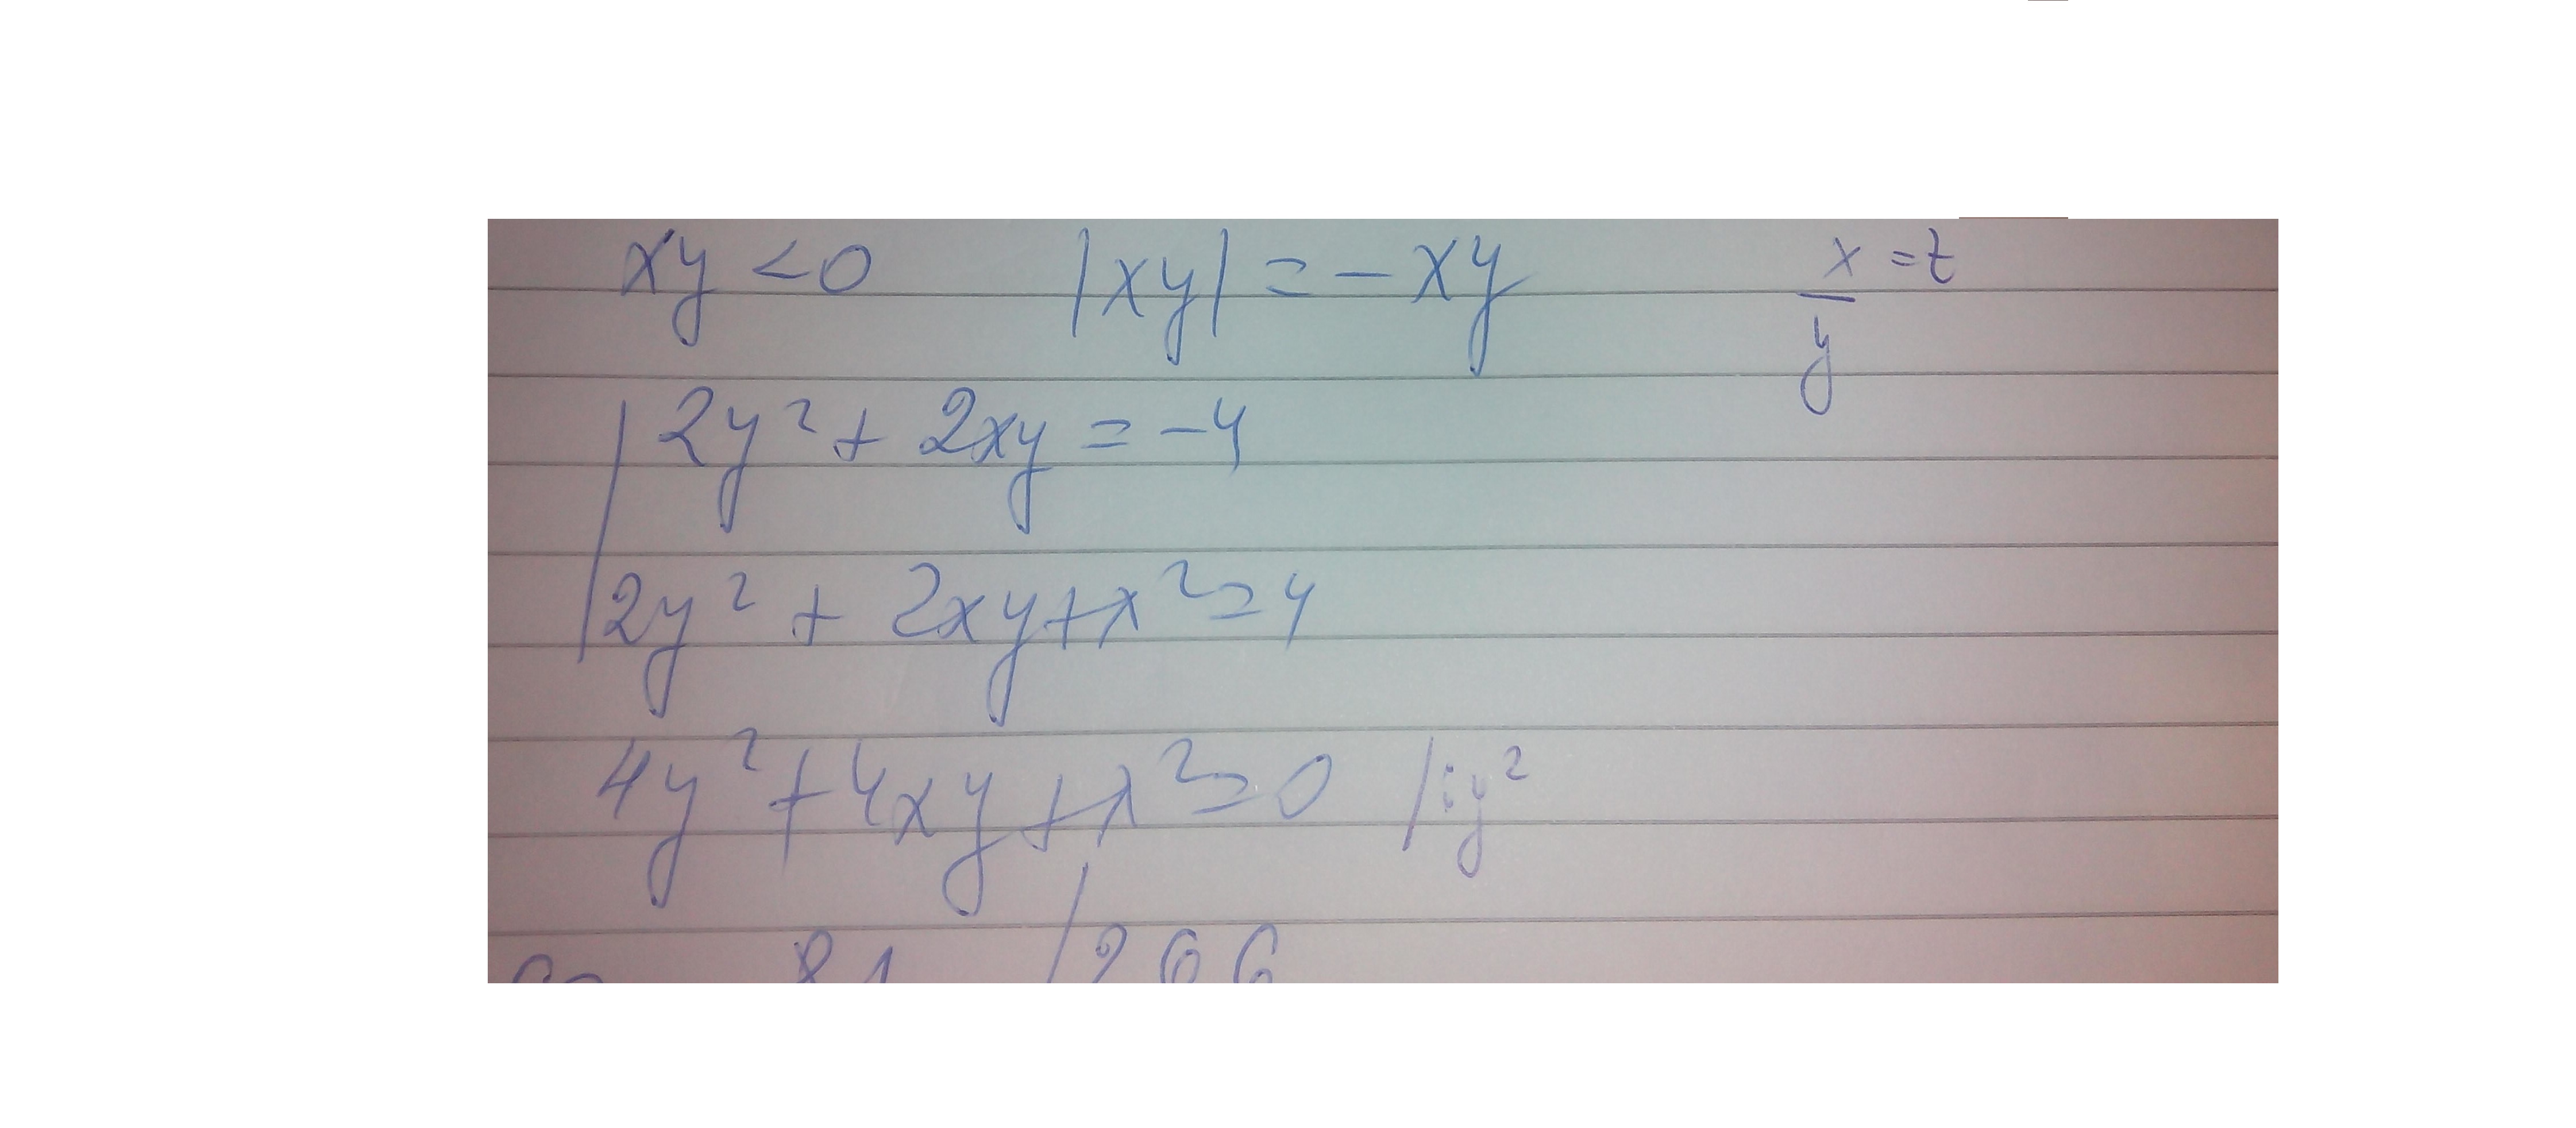 xy < 0 |xy| = - xy x/y = t
2y² + 2xy = -4
2y² + 2xy + x² = 4
4y² + 4xy + x² = 0 /:y²